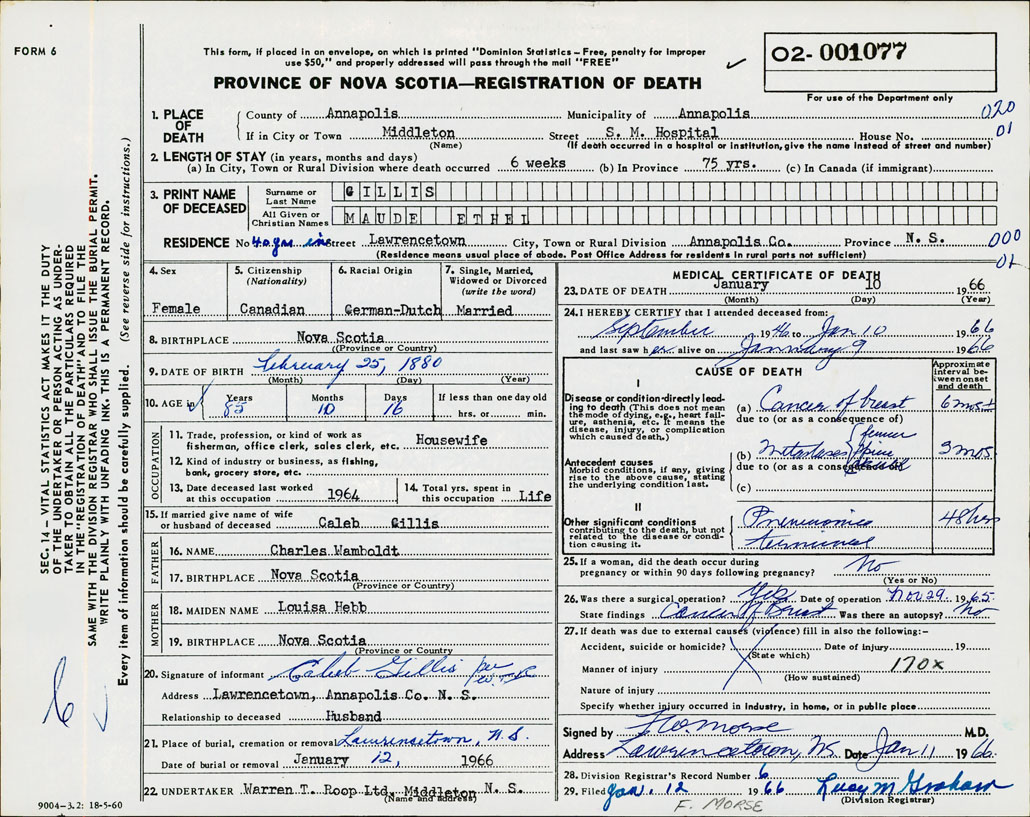 FORM 6
This form, if placed in an envelope, on which is printed "Dominion Statistics – Free, penalty for improper
use $50," and properly addressed will pass through the mail "FREE"
PROVINCE OF NOVA SCOTIA—REGISTRATION OF DEATH
02- 001077
For use of the Department only
1. PLACE OF DEATH
County of Annapolis Municipality of Annapolis 020
If in City or Town Middleton Street S. M. Hospital House No. 01
(Name) (If death occurred in a hospital or institution, give the name instead of street and number)
2. LENGTH OF STAY (in years, months and days)
(a) In City, Town or Rural Division where death occurred 6 weeks (b) In Province 75 yrs. (c) In Canada (if immigrant)
3. PRINT NAME OF DECEASED
Surname or Last Name GILLIS
All Given or Christian Names MAUDE ETHEL
RESIDENCE No 40 yrs in Street Lawrencetown City, Town or Rural Division Annapolis Co. Province N. S. 000
(Residence means usual place of abode. Post Office Address for residents in rural parts not sufficient) 01
4. Sex
Female
5. Citizenship (Nationality)
Canadian
6. Racial Origin
German-Dutch
7. Single, Married, Widowed or Divorced (write the word)
Married
8. BIRTHPLACE Nova Scotia
(Province or Country)
9. DATE OF BIRTH February 25, 1880
(Month) (Day) (Year)
10. AGE in Years 85 Months 10 Days 16 If less than one day old
hrs. or min.
OCCUPATION
11. Trade, profession, or kind of work as
fisherman, office clerk, sales clerk, etc. Housewife
12. Kind of industry or business, as fishing,
bank, grocery store, etc.
13. Date deceased last worked
at this occupation 1964
14. Total yrs. spent in
this occupation Life
15. If married give name of wife
or husband of deceased Caleb Gillis
FATHER
16. NAME Charles Wamboldt
17. BIRTHPLACE Nova Scotia
(Province or Country)
MOTHER
18. MAIDEN NAME Louisa Hebb
19. BIRTHPLACE Nova Scotia
(Province or Country)
20. Signature of informant Caleb Gillis per
Address Lawrencetown, Annapolis Co. N. S.
Relationship to deceased Husband
21. Place of burial, cremation or removal Lawrencetown, N.S.
Date of burial or removal January 12, 1966
22. UNDERTAKER Warren T. Roop Ltd. Middleton N. S.
(Name and address)
MEDICAL CERTIFICATE OF DEATH
23. DATE OF DEATH January 10 1966
(Month) (Day) (Year)
24. I HEREBY CERTIFY that I attended deceased from:
September 1946 to Jan 10 1966
and last saw her alive on January 9 1966
CAUSE OF DEATH
Approximate interval between onset and death
I
Disease or condition-directly leading to death (This does not mean
the mode of dying, e.g., heart failure, asthenia, etc. It means the
disease, injury, or complication
which caused death.)
(a) Cancer of breast 6 mos ±
due to (or as a consequence of)
(b) Metastases femur spine 3 mos
due to (or as a consequence of)
(c)
Antecedent causes
Morbid conditions, if any, giving
rise to the above cause, stating
the underlying condition last.
II
Other significant conditions
contributing to the death, but not
related to the disease or condition causing it.
Pneumonia 48 hrs
terminal
25. If a woman, did the death occur during
pregnancy or within 90 days following pregnancy? No
(Yes or No)
26. Was there a surgical operation? Yes Date of operation Nov 29 1965
State findings Cancer of Breast Was there an autopsy? No
27. If death was due to external causes (violence) fill in also the following:–
Accident, suicide or homicide? Date of injury 19
(State which)
Manner of injury 170x
(How sustained)
Nature of injury
Specify whether injury occurred in industry, in home, or in public place
Signed by F. W. Morse M.D.
Address Lawrencetown, NS Date Jan 11 1966
28. Division Registrar's Record Number 6
29. Filed Jan. 12 1966 Lucy M Graham
(Division Registrar)
F. MORSE
SEC. 14 – VITAL STATISTICS ACT MAKES IT THE DUTY
OF THE UNDERTAKER OR PERSON ACTING AS UNDER-
TAKER TO OBTAIN ALL THE PARTICULARS REQUIRED
IN THE "REGISTRATION OF DEATH" AND TO FILE THE
SAME WITH THE DIVISION REGISTRAR WHO SHALL ISSUE THE BURIAL PERMIT.
WRITE PLAINLY WITH UNFADING INK. THIS IS A PERMANENT RECORD.
Every item of information should be carefully supplied. (See reverse side for instructions.)
9004–3.2: 18-5-60